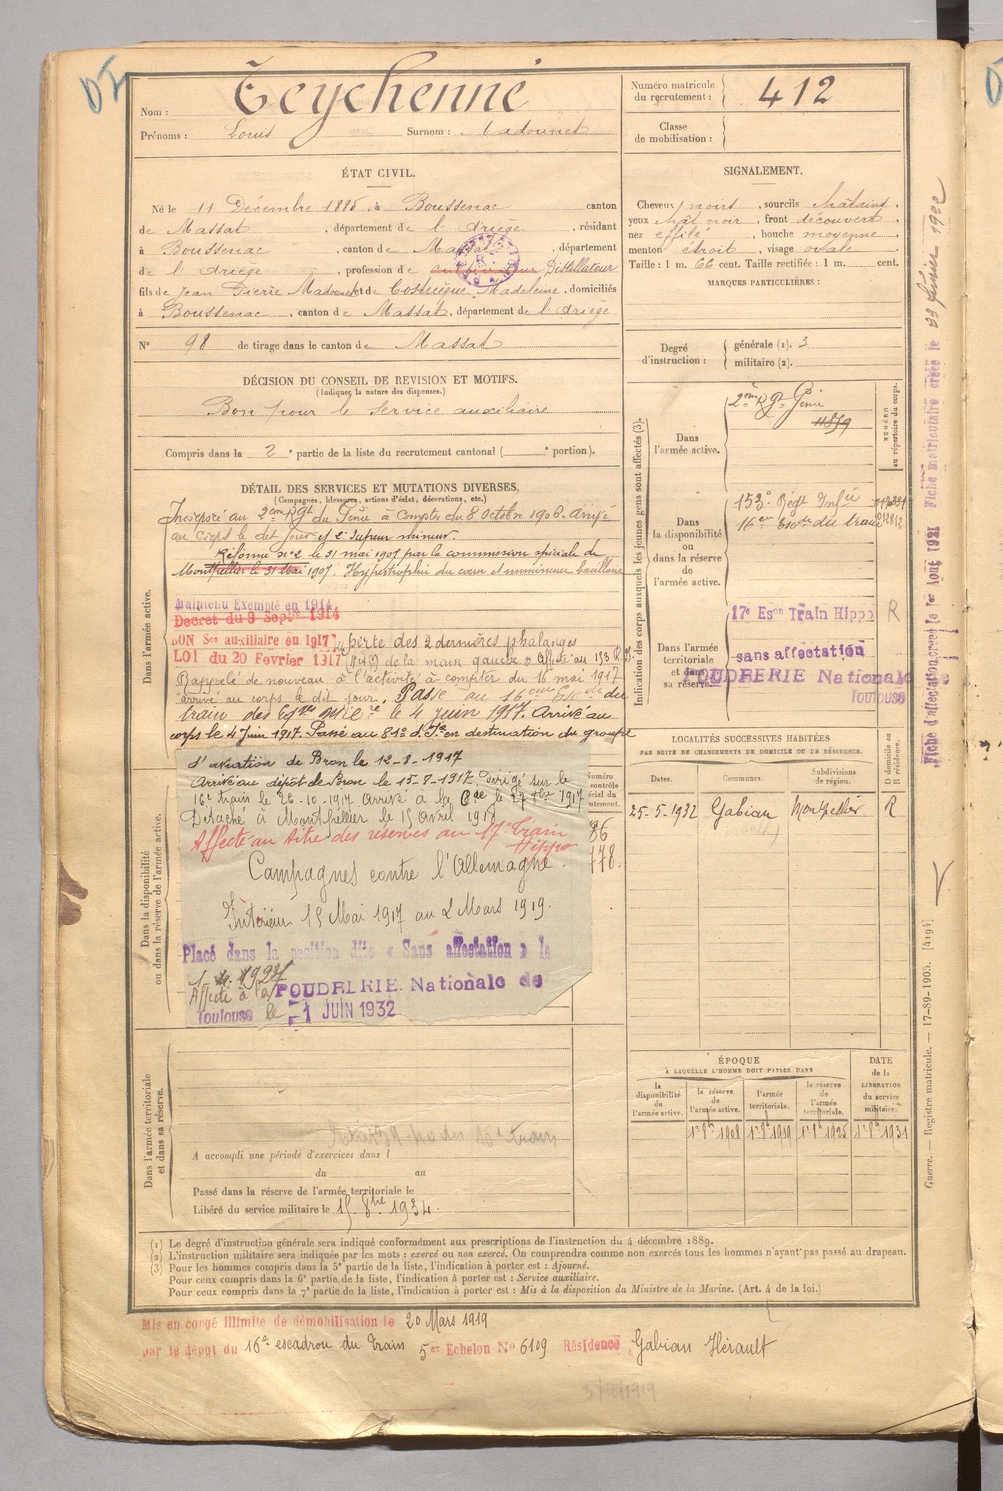 Nom : Teychenné
Prénoms : Louis Surnom : Madounet
Numéro matricule
du recrutement : 412
Classe
de mobilisation :
ÉTAT CIVIL.
Né le 11 Décembre 1885, à Boussenac canton
de Massat, département de l'Ariège, résidant
à Boussenac, canton de Massat, département
de l'Ariège, profession de cultivateur Distillateur
fils de Jean Pierre Madounet et de Costecèque Madeleine, domiciliés
à Boussenac, canton de Massat, département de l'Ariège
N° 98 de tirage dans le canton de Massat
SIGNALEMENT.
Cheveux noirs, sourcils châtains,
yeux chât noir, front découvert,
nez effilé, bouche moyenne,
menton étroit, visage ovale.
Taille : 1 m. 66 cent. Taille rectifiée : 1 m. cent.
MARQUES PARTICULIÈRES :
Degré
d'instruction :
générale (1). 3
militaire (2).
DÉCISION DU CONSEIL DE REVISION ET MOTIFS.
(Indiquer la nature des dispenses.)
Bon pour le service auxiliaire
Compris dans la 2e partie de la liste du recrutement cantonal ( e portion).
DÉTAIL DES SERVICES ET MUTATIONS DIVERSES.
(Campagnes, blessures, actions d'éclat, décorations, etc.)
Dans l'armée active.
Incorporé au 2ème Rgt du Génie à compter du 8 Octobre 1906. Arrivé
au corps le dit jour et 2e Sapeur mineur.
Réformé n° 2 le 31 mai 1907 par la commission spéciale de
Montpellier le 31 Mai 1907. Hypertrophie du cœur et imminence bacillaire
Maintenu Exempté en 1914
Décret du 9 Septbre 1914
BON Sce auxiliaire en 1917
perte des 2 dernières phalanges
LOI du 20 Février 1917
de la main gauche Affecté au 153 R.I
Rappelé de nouveau à l'activité à compter du 16 mai 1917
arrivé au corps le dit jour. Passé au 16eme Escon du
train des Eqges Mil.re le 4 juin 1917. Arrivé au
corps le 4 juin 1917. Passé au 81e d'Ie en destination du groupe
d'aviation de Bron le 12-8-1917
Arrivé au dépôt de Bron le 15-8-1917 Dirigé sur le
16e train le 26-10-1917 arrivé à la Cie le 27 8bre 1917
Détaché à Montpellier le 15 avril 1918
Affecté au titre des réserves au 17e Train
Hippo
Campagnes contre l'Allemagne.
Intérieur 15 Mai 1917 au 2 Mars 1919.
Placé dans la position dite « Sans affectation » le
1927
Affecté à la POUDRERIE Nationale de
Toulouse le 1 JUIN 1932
Dans la disponibilité
ou dans la réserve de l'armée active.
Indication des corps auxquels les jeunes gens sont affectés (3).
NUMÉRO
au répertoire du corps.
Dans
l'armée active.
2ème Rgt Génie
Dans
la disponibilité
ou
dans la réserve
de
l'armée active.
153e Régt Infie
16er Escon du train
Dans l'armée
territoriale
et dans
sa réserve.
17e Eson Train Hippo R
sans affectation
POUDRERIE Nationale de
Toulouse
LOCALITÉS SUCCESSIVES HABITÉES
PAR SUITE DE CHANGEMENTS DE DOMICILE OU DE RÉSIDENCE.
Dates. Communes. Subdivisions
de région.
D domicile ou
R résidence.
25-5-1932 Gabian Montpellier R
ÉPOQUE
À LAQUELLE L'HOMME DOIT PASSER DANS
la
disponibilité
de
l'armée active.
la réserve
de
l'armée active.
l'armée
territoriale.
la réserve
de
l'armée
territoriale.
DATE
de la
LIBÉRATION
du service
militaire.
1er 8bre 1908 1er 8bre 1919 1er 8bre 1925 1er 8bre 1931
Dans l'armée territoriale
et dans sa réserve.
A accompli une période d'exercices dans l
du au
Passé dans la réserve de l'armée territoriale le
Libéré du service militaire le 15 8bre 1934.
(1) Le degré d'instruction générale sera indiqué conformément aux prescriptions de l'instruction du 4 décembre 1889.
(2) L'instruction militaire sera indiquée par les mots : exercé ou non exercé. On comprendra comme non exercés tous les hommes n'ayant pas passé au drapeau.
(3) Pour les hommes compris dans la 5e partie de la liste, l'indication à porter est : Ajourné.
Pour ceux compris dans la 6e partie de la liste, l'indication à porter est : Service auxiliaire.
Pour ceux compris dans la 7e partie de la liste, l'indication à porter est : Mis à la disposition du Ministre de la Marine. (Art. 4 de la loi.)
Mis en congé illimité de démobilisation le 20 Mars 1919
par le dépôt du 16e escadron du Train 5er Echelon N° 6109 Résidence Gabian Hérault
Fiche d'affectation créée le 1er Aout 1921 Fiche matriculaire créée le 23 février 1922
Guerre. — Registre matricule. — 17-89-1905. [419].